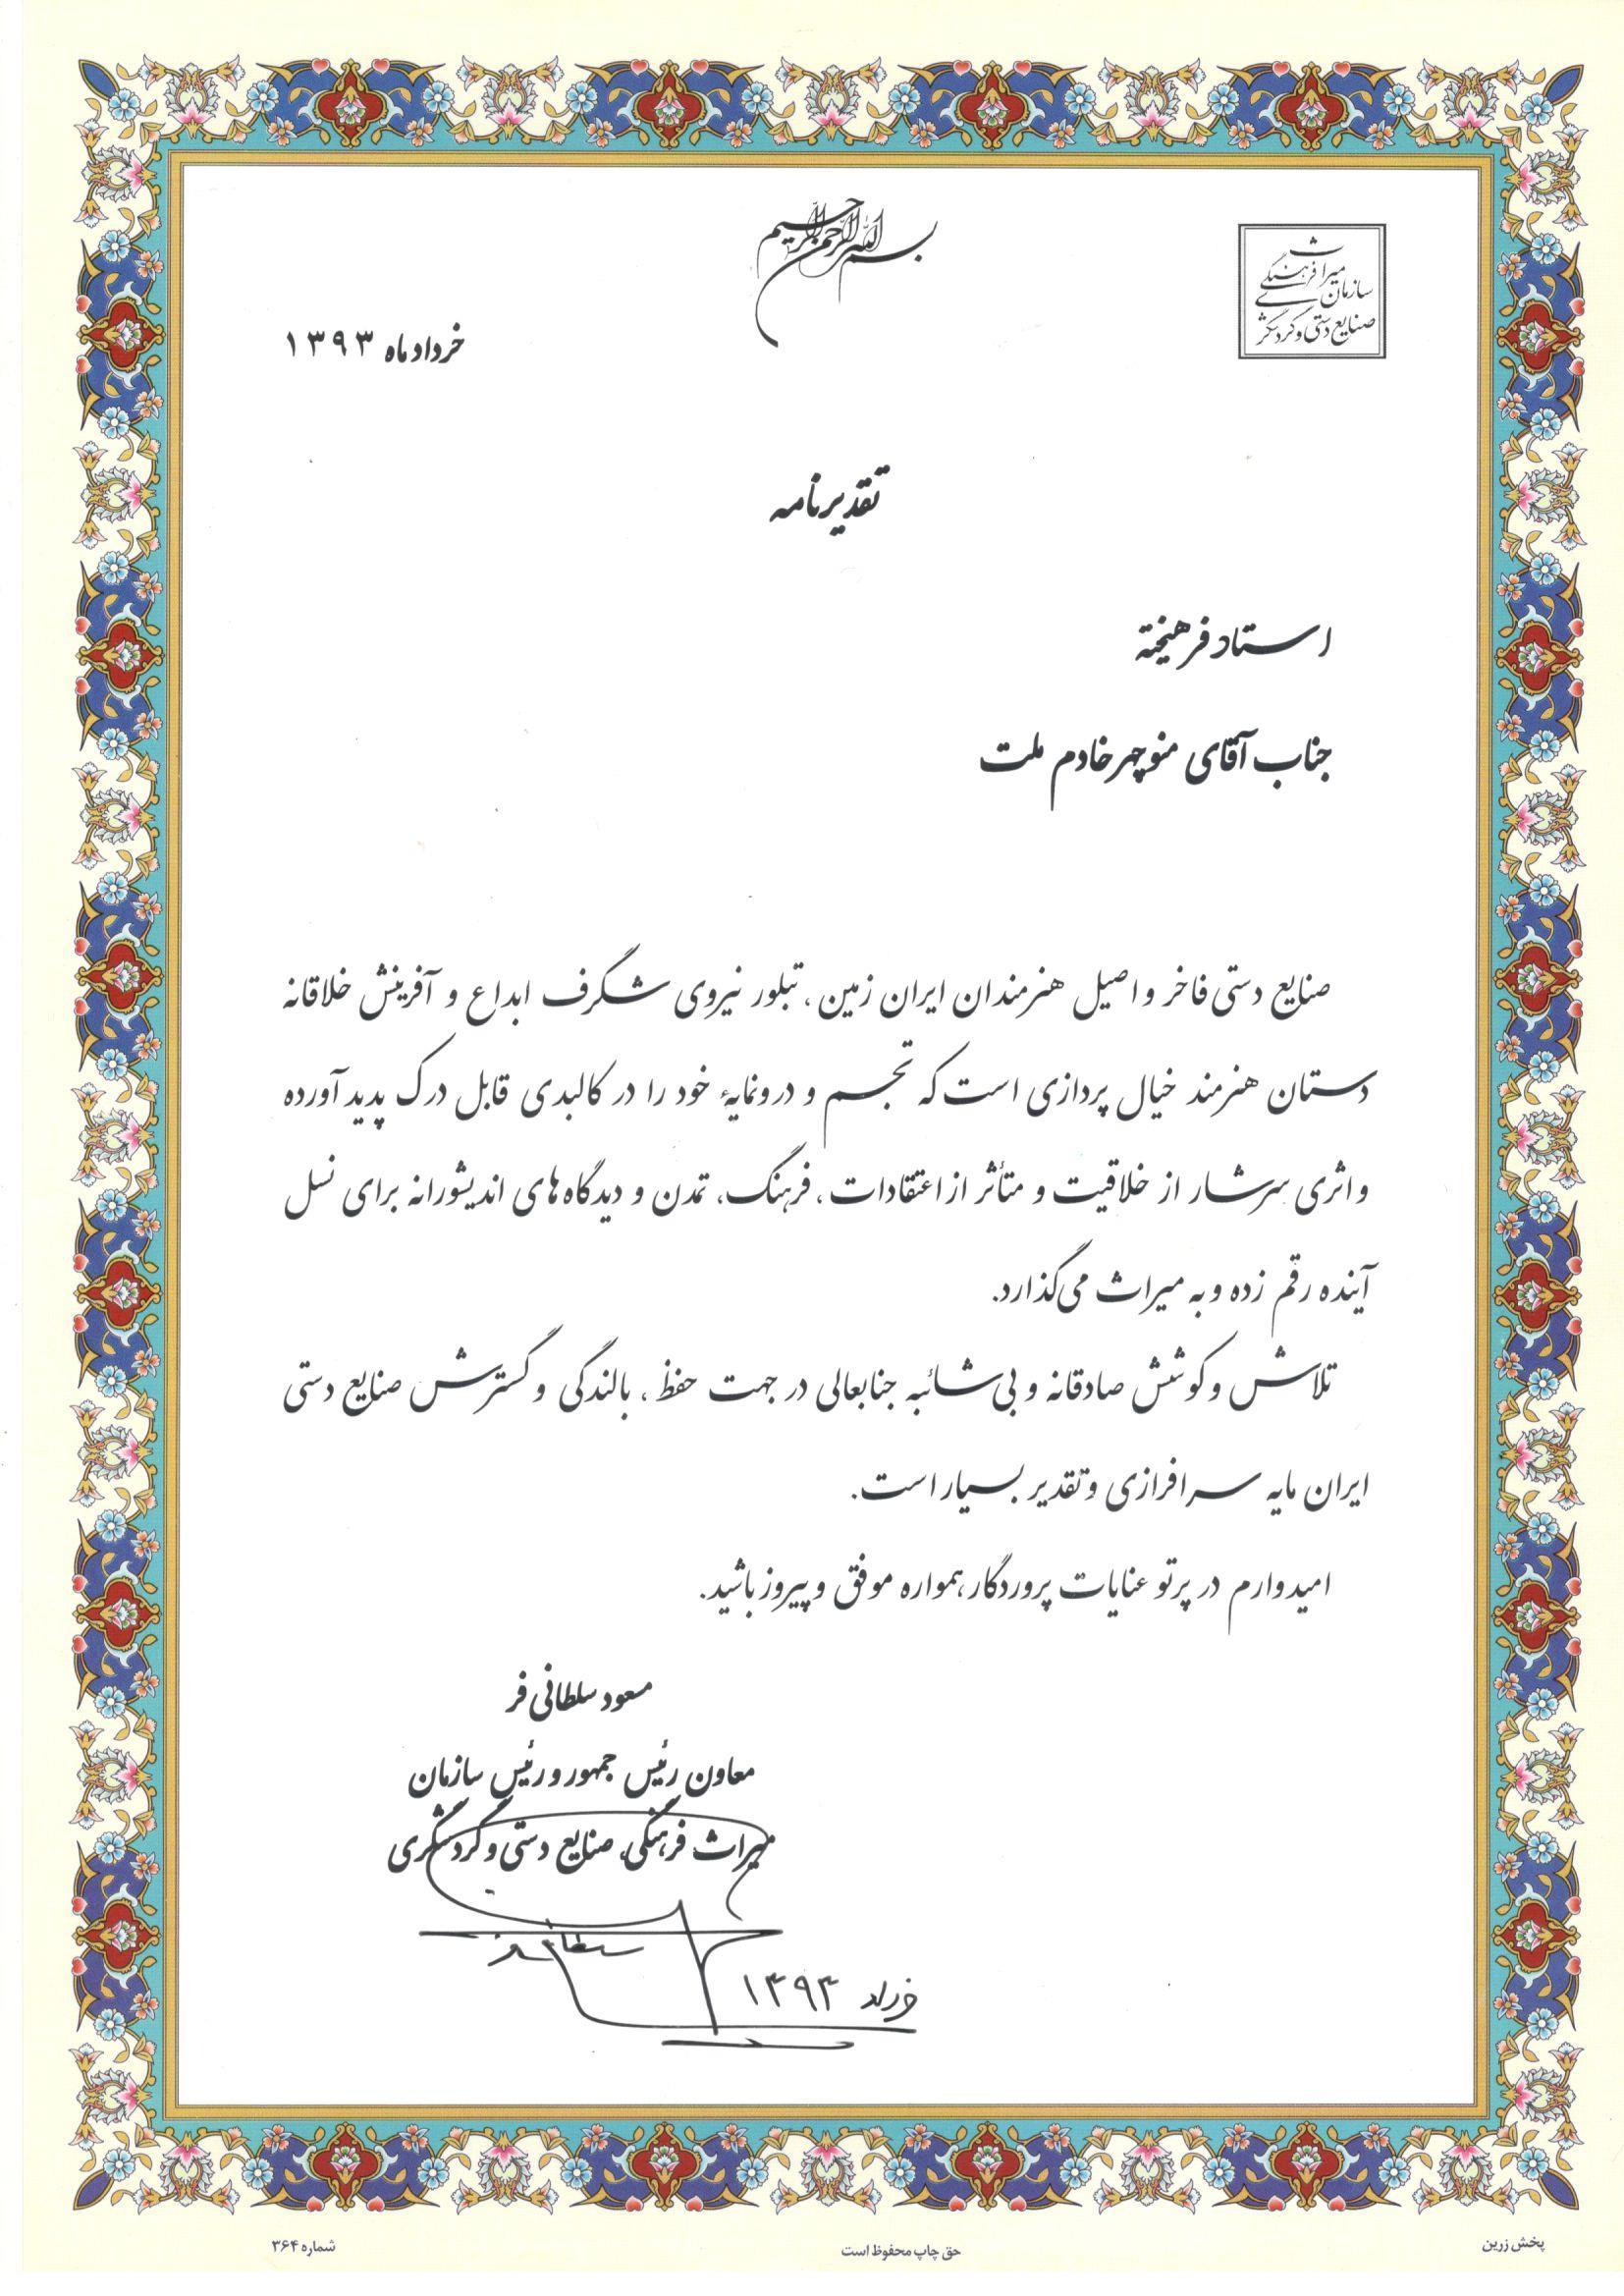 بسم الله الرحمن الرحیم
سازمان میراث فرهنگی
صنایع دستی و گردشگری
خرداد ماه ۱۳۹۳
تقدیرنامه
استاد فرهیخته
جناب آقای منوچهر خادم ملت
صنایع دستی فاخر و اصیل هنرمندان ایران زمین، تبلور نیروی شگرف ابداع و آفرینش خلاقانه
دستان هنرمند خیال پردازی است که تجسم و درونمایهٔ خود را در کالبدی قابل درک پدید آورده
و اثری سرشار از خلاقیت و متأثر از اعتقادات، فرهنگ، تمدن و دیدگاه های اندیشورانه برای نسل
آینده رقم زده و به میراث می گذارد.
تلاش و کوشش صادقانه و بی شائبه جنابعالی در جهت حفظ، بالندگی و گسترش صنایع دستی
ایران مایه سرافرازی و تقدیر بسیار است.
امیدوارم در پرتو عنایات پروردگار، همواره موفق و پیروز باشید.
مسعود سلطانی فر
معاون رئیس جمهور و رئیس سازمان
میراث فرهنگی، صنایع دستی و گردشگری
خرداد ۱۳۹۳
پخش زرین
حق چاپ محفوظ است
شماره ۳۶۴